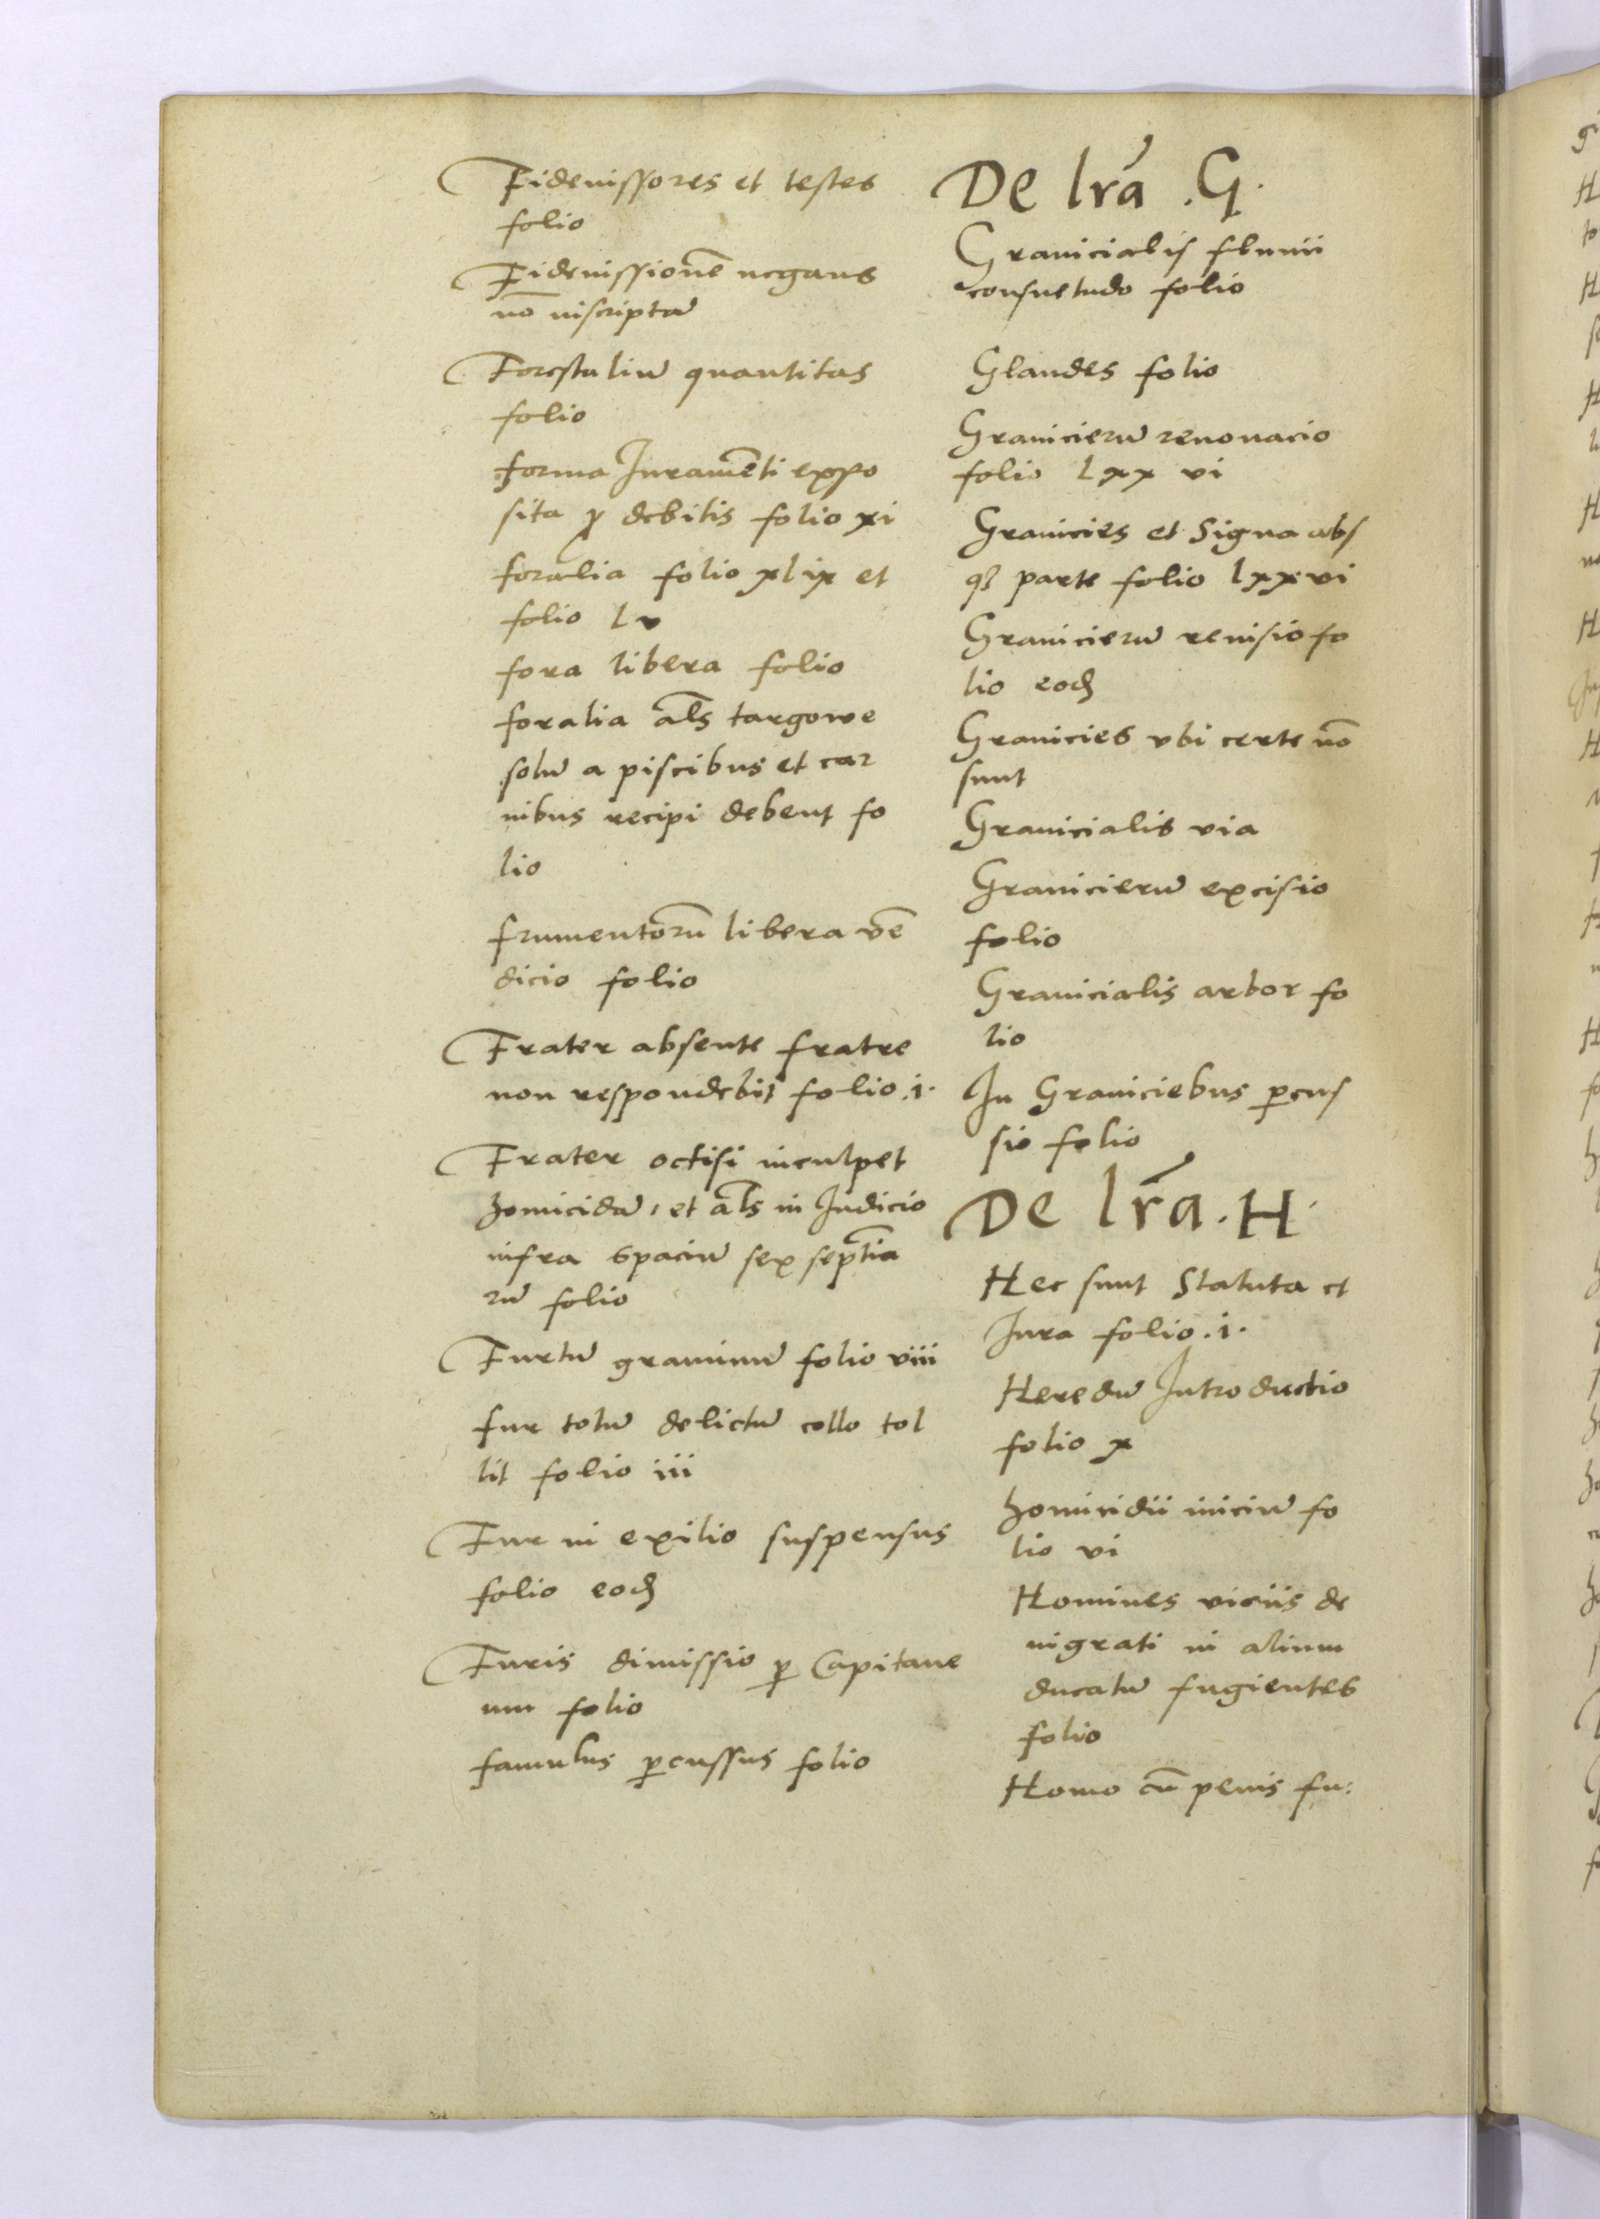 Fideiussores et testes
folio
Fideiussionē negans
nō inscriptā
Forestaliū quantitas
folio
forma Iuramēti expo
sita ꝓ debitis folio xi
foralia folio xlix et
folio lv
fora libera folio
foralia al̄s targowe
solū a piscibus et car
nibus recipi debent fo
lio
frumentorū libera vē
dicio folio
Frater absente fratre
non respondebit folio .i.
Frater octisi inculpet
homicidā, et al̄s in Iudicio
infra spaciū sex septīa
rū folio
Furtū graminū folio viii
fur totū delictū collo tol
lit folio iii
Fur in exilio suspensus
folio eod
Furis dimissio ꝑ Capitane
um folio
famulus ꝑcussus folio
De lr̄a .G.
Granicialis fluuii
consuetudo folio
Glandes folio
Granicierū renouacio
folio lxx vi
Granicies et Signa abs
qȝ parte folio lxxvi
Granicierū reuisio fo
lio eod
Granicies vbi certe nō
sunt
Granicialis via
Granicierū excisio
folio
Granicialis arbor fo
lio
In Graniciebus ꝑcus
sio folio
De lr̄a .H.
Hec sunt Statuta et
Iura folio .i.
Heredū Introductio
folio x
homicidii iniciū fo
lio vi
Homines viciis de
nigrati in alium
ducatū fugientes
folio
Homo cū penis fu: